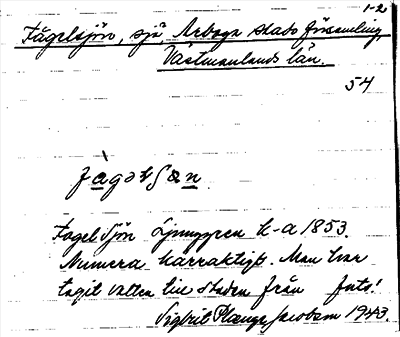 1-2
Fågelsjön, sjö, Arboga stads församling,
Västmanlands län.
54
Fogel Sjön Ljunggren k-a 1853.
Numera kärraktigt. Man har
tagit vatten till staden från
Sigbrit Plænge Jacobson 1943.